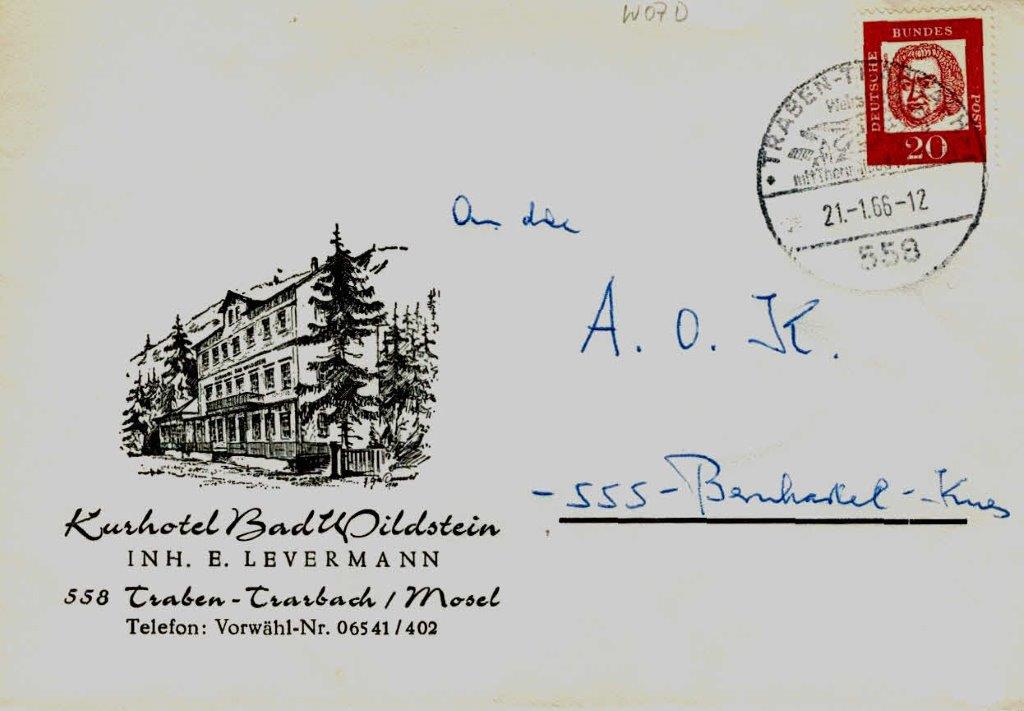 W07D
BUNDES
DEUTSCHE
POST
20
TRABEN-TR
mit Therm
21.-1.66-12
558
An die
A. O. K.
-555- Bernkastel-Kues
Kurhotel Bad Wildstein
INH. E. LEVERMANN
558 Traben-Trarbach / Mosel
Telefon: Vorwähl-Nr. 06541/402